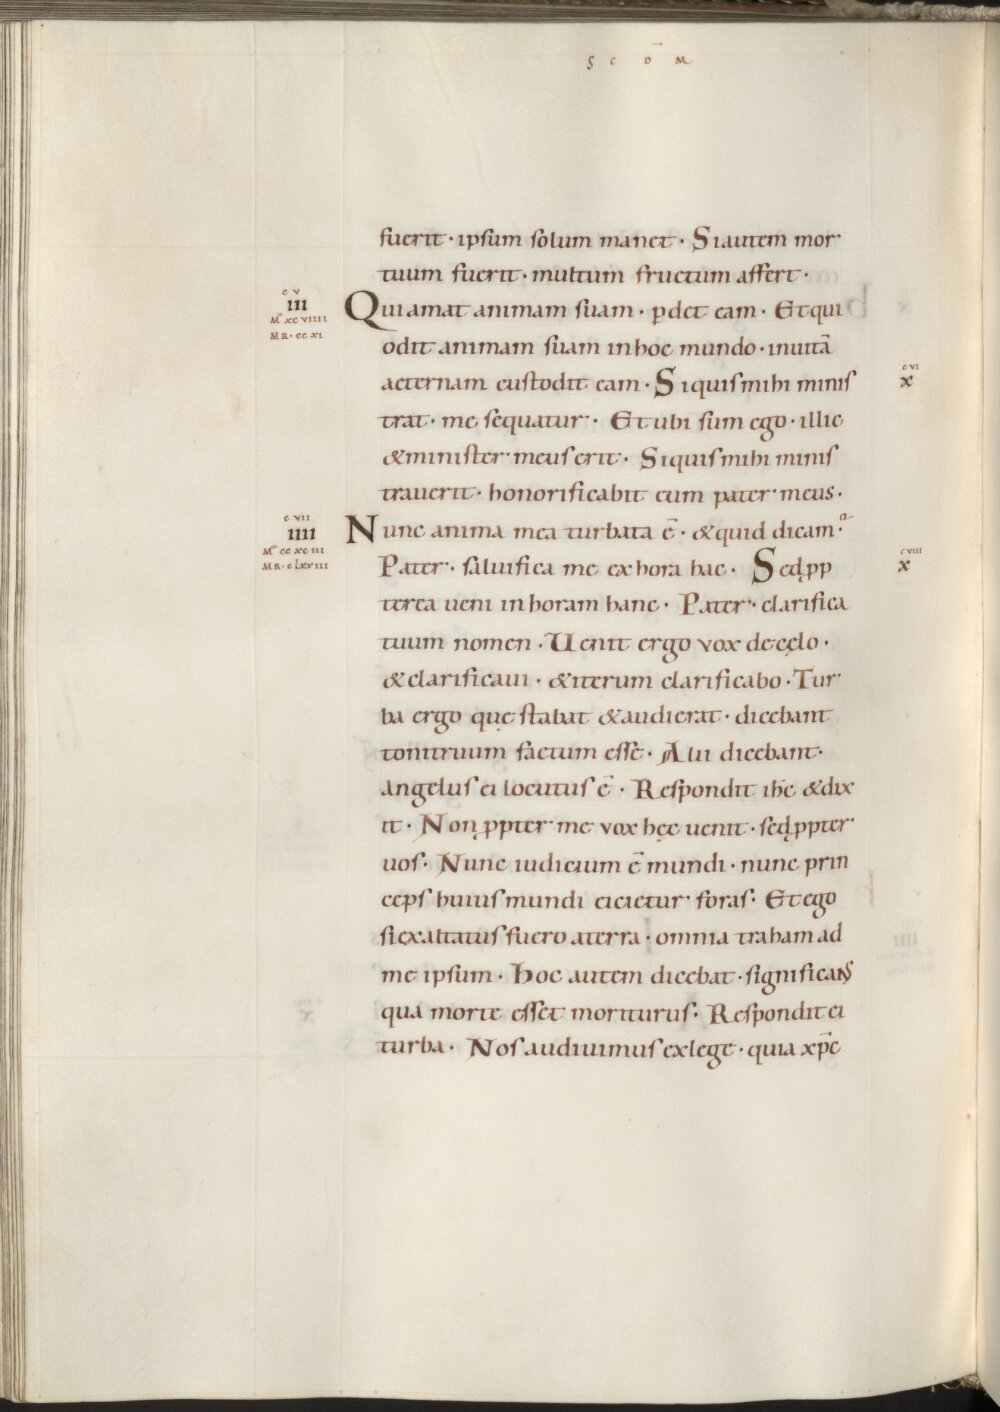 S C D̅ M
fuerit · ipsum solum manet · Siautem mor
tuum fuerit · multum fructum affert ·
c v
III
Mᵗ xc VIIII
MR · cc xi
Quiamat animam suam · p̲det eam · Etqui
odit animam suam inhoc mundo · inuitā
aeternam custodit eam · Siquismihi minis
c vi
x
trat · me sequatur · Et ubi sum ego · illic
&minister meus erit · Siquismihi minis
trauerit · honorificabit eum pater meus ·
c vii
IIII
Mᵗ cc xc iii
MR · c lxxiii
Nunc anima mea turbata ē · &quid dicam ·
Pater · saluifica me ex hora hac · Sedꝓp
c viii
x
terea ueni in horam hanc · Pater · clarifica
tuum nomen · Uenit ergo vox decęlo ·
&clarificaui · &iterum clarificabo · Tur
ba ergo quę stabat &audierat · dicebant
tonitruum factum esse · Alii dicebant ·
angelus ei locutus ē · Respondit ih̅c &dix
it · Nonꝓpter me vox hęc uenit · sedꝓpter
uos · Nunc iudicium ē mundi · nunc prin
ceps huius mundi eicietur foras · Et ego
siexaltatus fuero aterra · omnia traham ad
me ipsum · Hoc autem dicebat · significans
qua morte esset moriturus · Respondit ei
turba · Nos audiuimus exlege · quia xp̅c